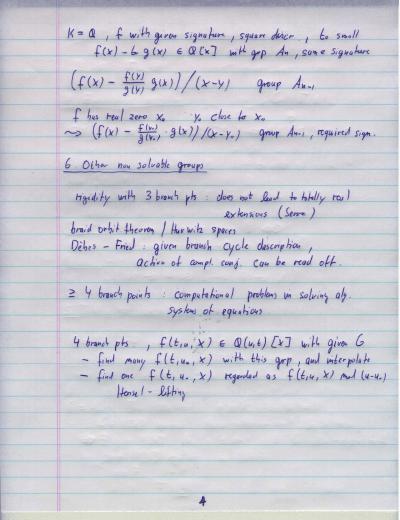 K = Q , f with given signature, square discr. , to small
f(x) - t g(x) ∈ Q[x] with grp An , same signature
(f(x) - f(y)/g(y) g(x)) / (x-y) group An-1
f has real zero x₀ y₀ close to x₀
⇝ (f(x) - f(y₀)/g(y₀) · g(x)) / (x-y₀) group An-1, required sign.
6 Other non solvable groups
rigidity with 3 branch pts : does not lead to totally real
extensions (Serre)
braid orbit theorem / Hurwitz spaces
Dèbes - Fried : given branch cycle description,
action of compl. conj. can be read off.
≥ 4 branch points : computational problems in solving alg.
system of equations
4 branch pts. , f(t,u,x) ∈ Q(u,t)[x] with given G
- find many f(t,u₀,x) with this grp, and interpolate
- find one f(t,u₀,x) regarded as f(t,u,x) mod (u-u₀)
Hensel-lifting
4